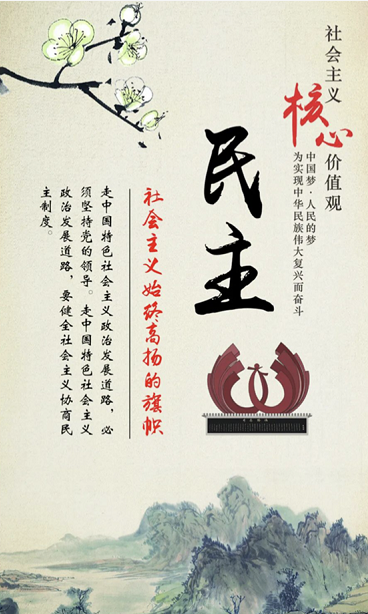 社会主义
核心
价值观
中国梦·人民的梦
为实现中华民族伟大复兴而奋斗
民主
社会主义始终高扬的旗帜
走中国特色社会主义政治发展道路，必
须坚持党的领导。走中国特色社会主义
政治发展道路，要健全社会主义协商民
主制度。